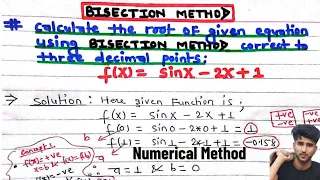 BISECTION METHOD
# Calculate the root of given equation
using BISECTION METHOD correct to
three decimal points:
f(x) = sinx - 2x + 1
⇒ Solution: Here given Function is;
f(x) = sinx - 2x + 1
f(0) = sin0 - 2*0 + 1 = 1
f(1) = sin1 - 2*1 + 1 = -0.158
∴ a = 1 & b = 0
Concept:
f(x) = +ve
x = b & f(x) = f(b)
+ve -ve
-ve +ve
Numerical Method